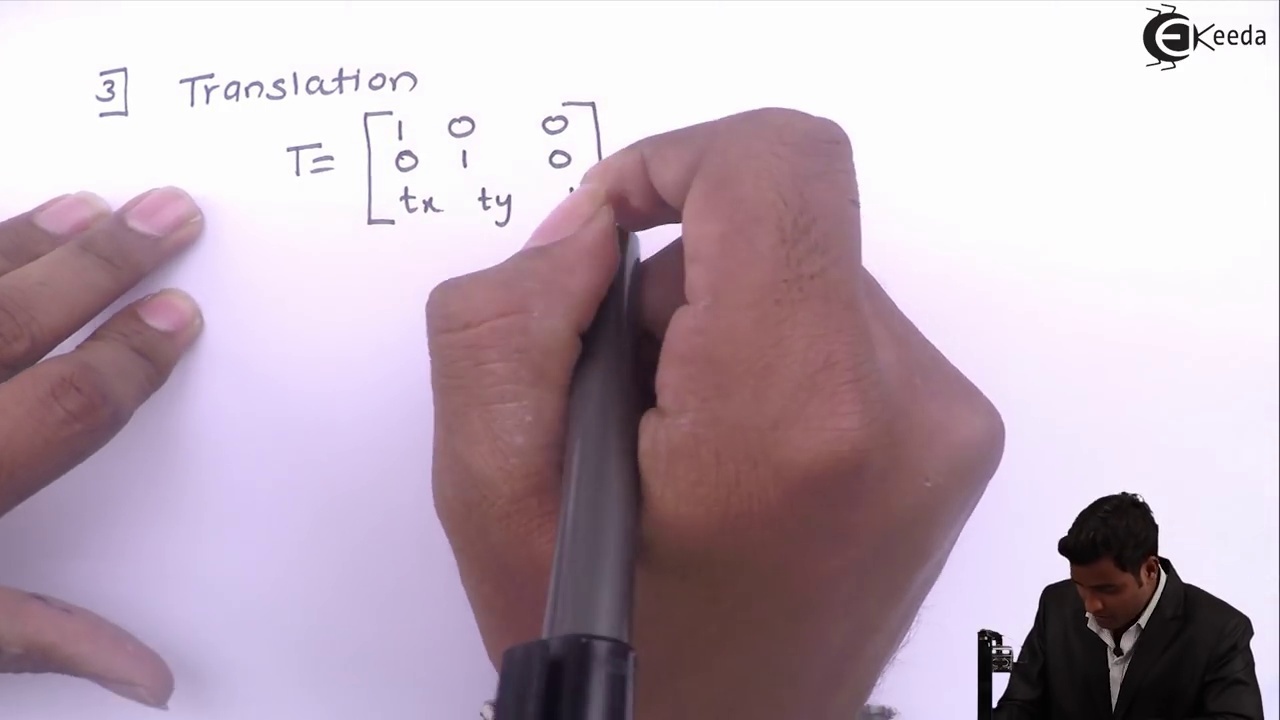 EKeeda
3] Translation
T= [ 1 0 0 ]
0 1 0
tx ty